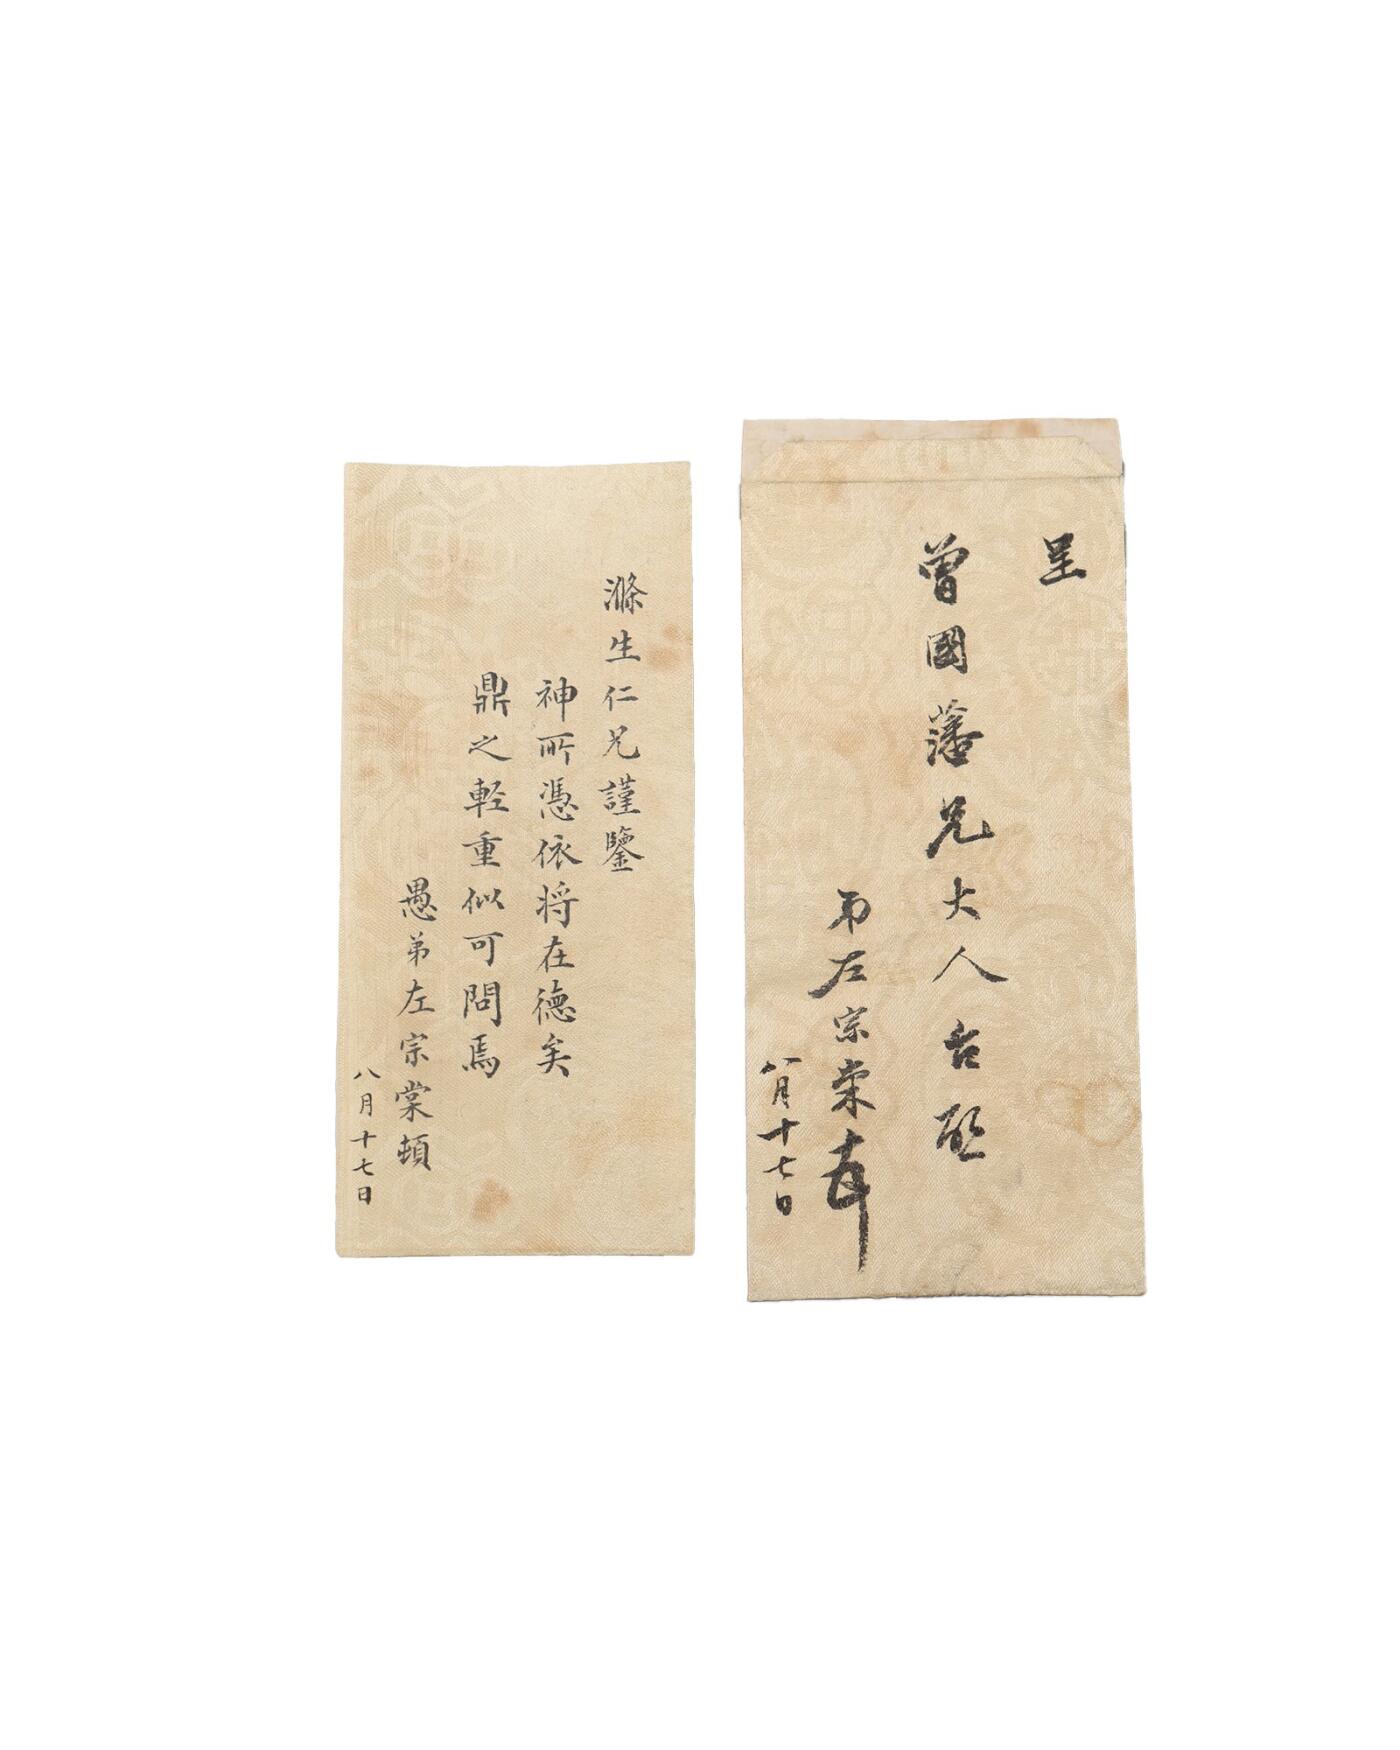 呈
曾國藩兄大人台啟
弟左宗棠
八月十七日
滌生仁兄謹鑒
神所憑依将在德矣
鼎之軽重似可問焉
愚弟左宗棠頓
八月十七日